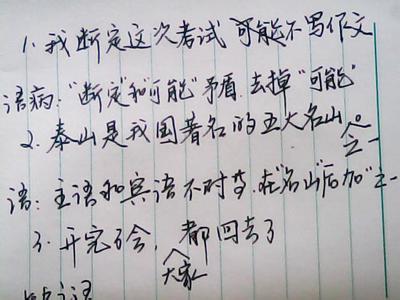 1. 我断定这次考试可能不写作文
语病："断定"和"可能"矛盾.去掉"可能"
2. 泰山是我国著名的五大名山。
之一
语：主语和宾语不对等.在"名山"后加"之一
3. 开完了会，都回去了
大家